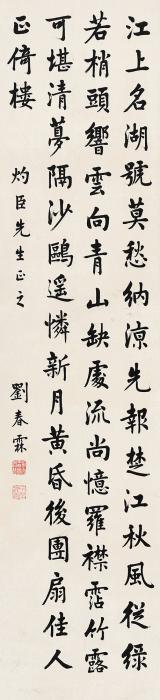 江上名湖號莫愁納涼先報楚江秋風從綠
若梢頭響雲向青山缺處流尚憶羅襟霑竹露
可堪清夢隔沙鷗遥憐新月黃昏後團扇佳人
正倚樓
灼臣先生正之
劉春霖